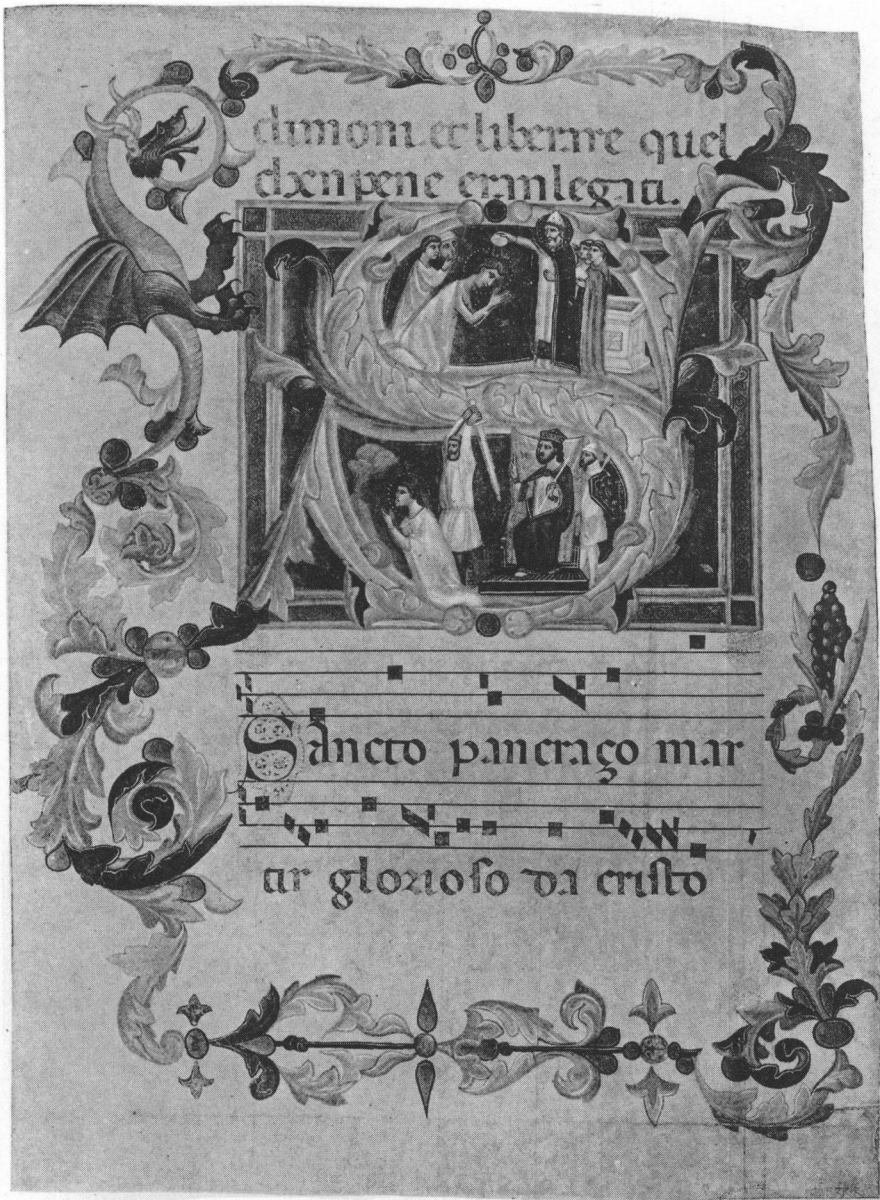 dimoni et liberare quel
ch en pene eran legati.
Sancto pancraço mar
tir glorioso da cristo